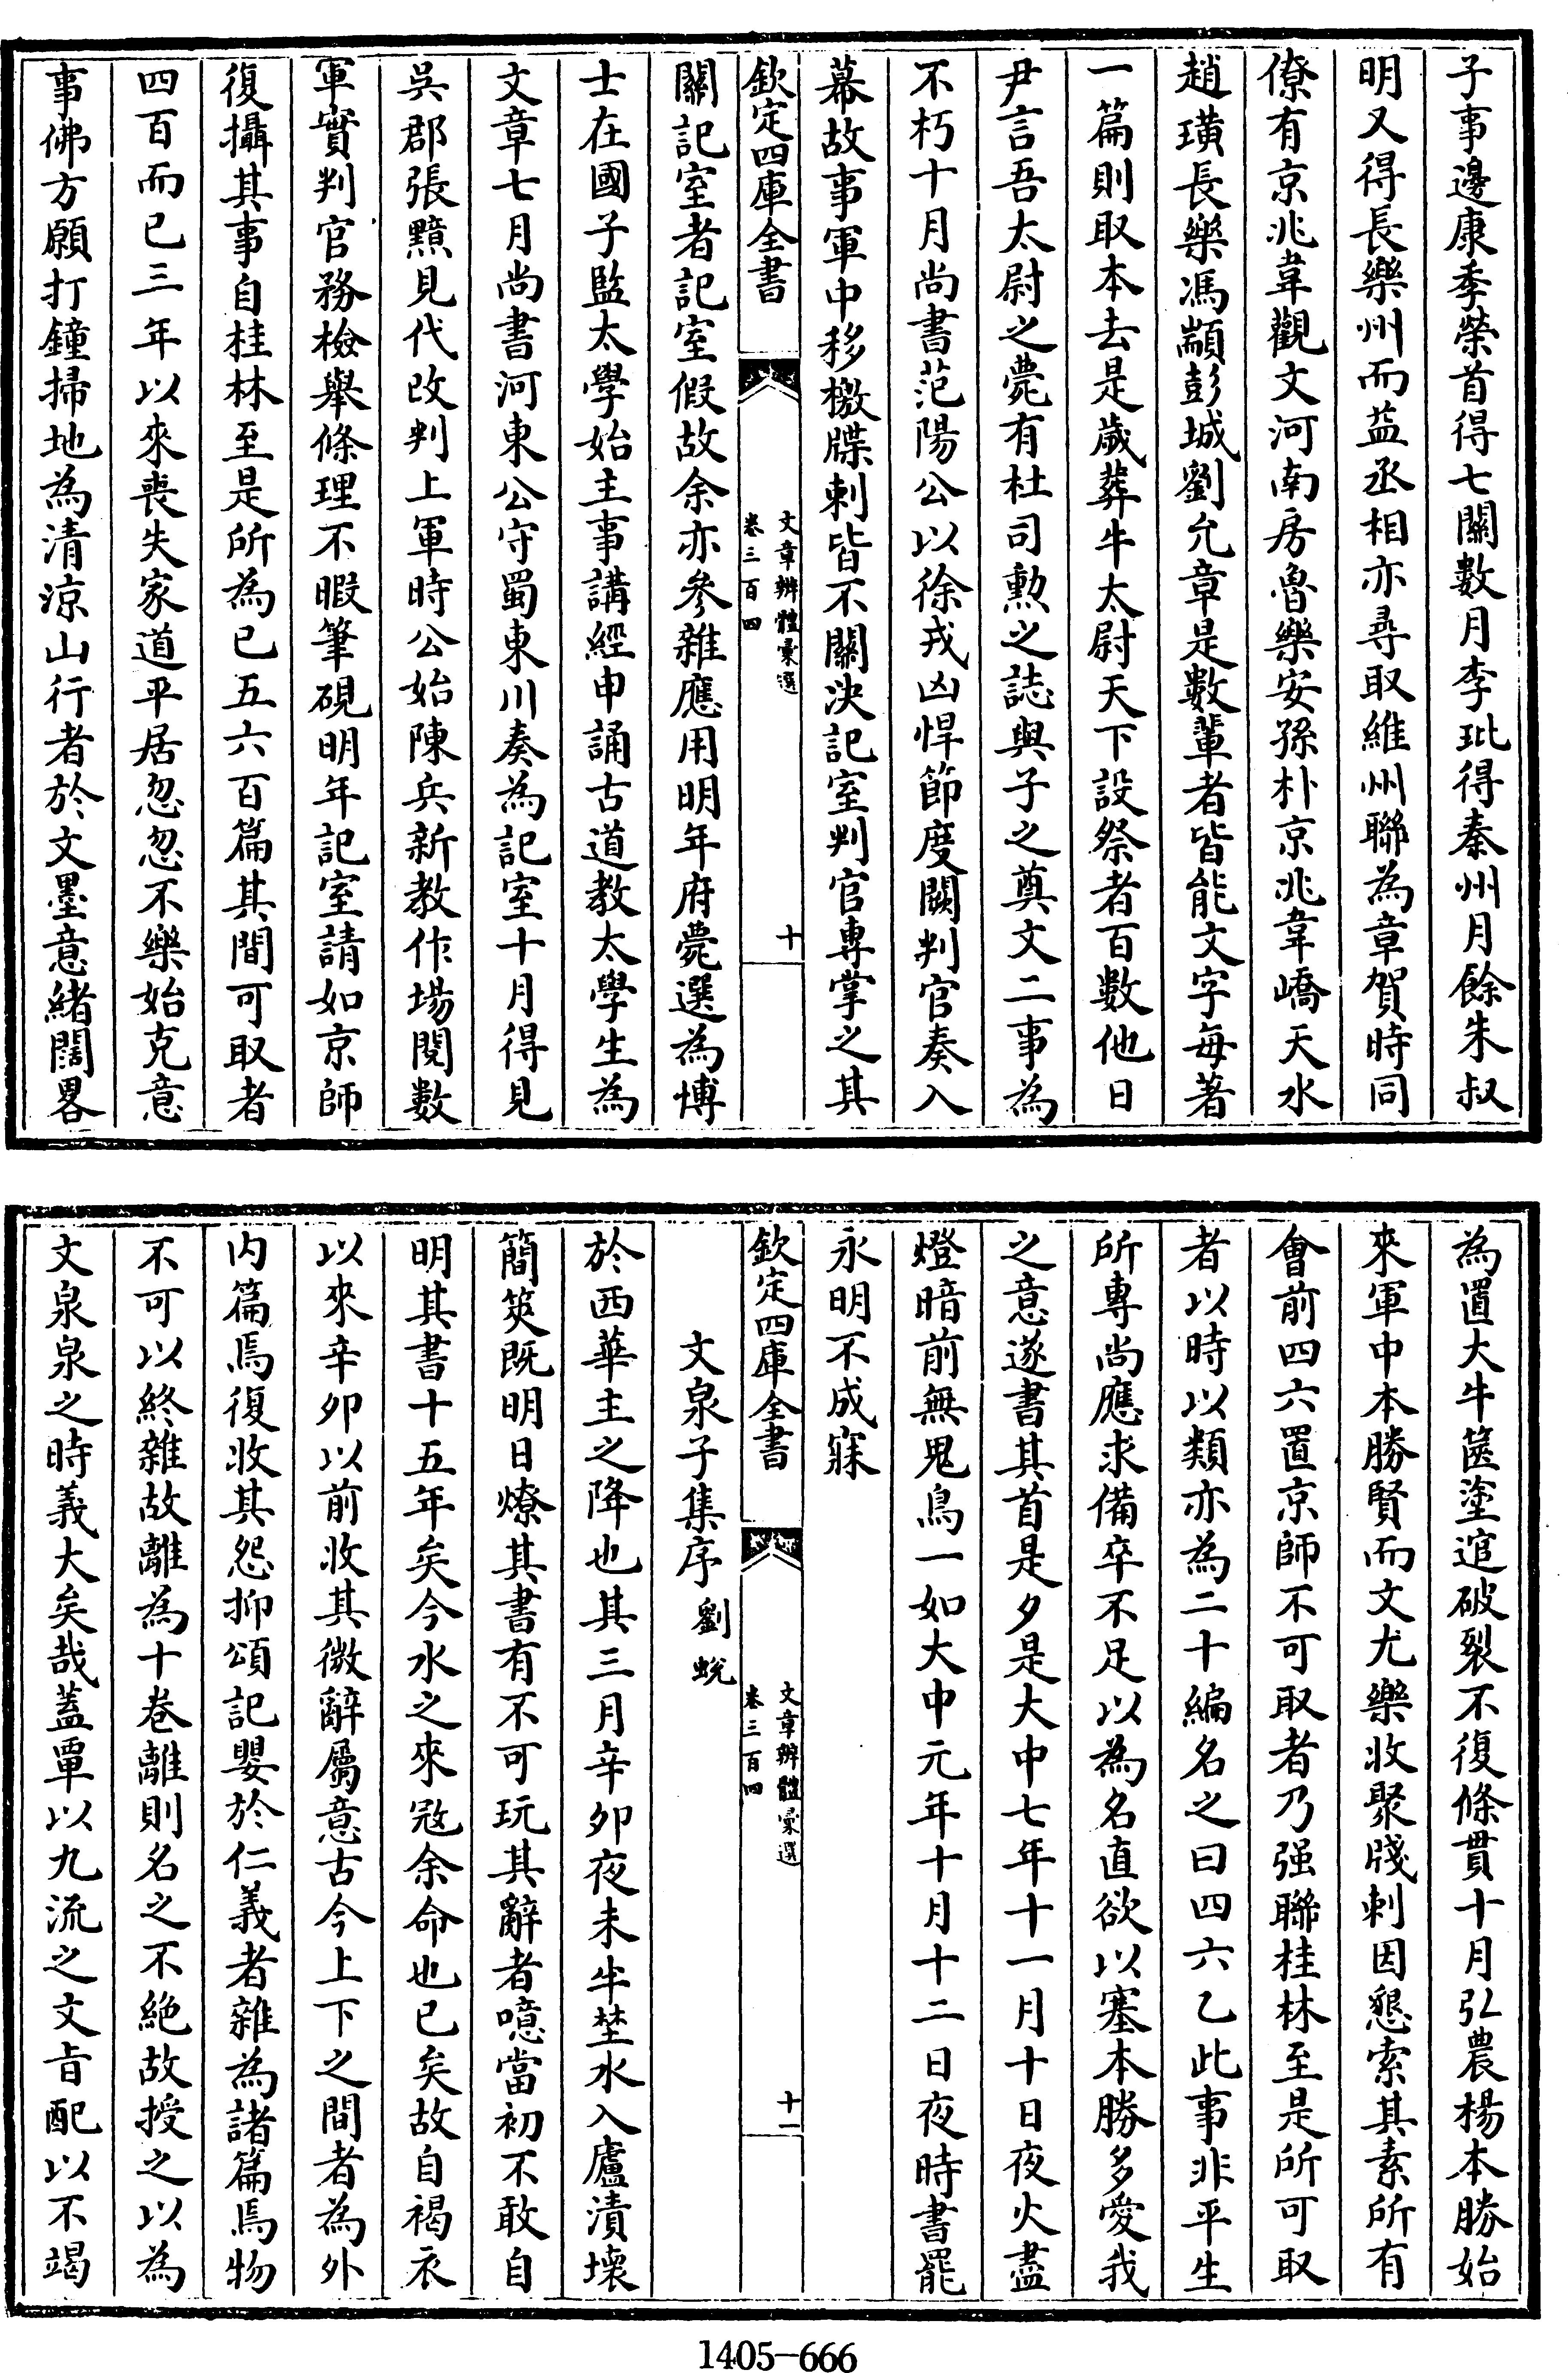 子事邊康季榮首得七關數月李玭得秦州月餘朱叔
明又得長樂州而葢丞相亦尋取維州聯為章賀時同
僚有京兆韋觀文河南房魯樂安孫朴京兆韋嶠天水
趙璜長樂馮顓彭城劉允章是數輩者皆能文字每著
一篇則取本去是歲葬牛太尉天下設祭者百數他日
尹言吾太尉之薨有杜司勲之誌與子之奠文二事為
不朽十月尚書范陽公以徐戎凶悍節度闕判官奏入
幕故事軍中移檄牒刺皆不關決記室判官専掌之其
欽定四庫全書
文章辨體彚選
卷三百四
十
關記室者記室假故余亦參雜應用明年府薨選為博
士在國子監太學始主事講經申誦古道教太學生為
文章七月尚書河東公守蜀東川奏為記室十月得見
吳郡張黯見代改判上軍時公始陳兵新教作場閱數
軍實判官務檢舉條理不暇筆硯明年記室請如京師
復攝其事自桂林至是所為已五六百篇其間可取者
四百而已三年以來喪失家道平居忽忽不樂始克意
事佛方願打鐘掃地為清涼山行者於文墨意緒闊畧
為置大牛篋塗逭破裂不復條貫十月弘農楊本勝始
來軍中本勝賢而文尤樂收聚牋刺因懇索其素所有
會前四六置京師不可取者乃强聯桂林至是所可取
者以時以類亦為二十編名之曰四六乙此事非平生
所專尚應求備卒不足以為名直欲以塞本勝多愛我
之意遂書其首是夕是大中七年十一月十日夜火盡
燈暗前無鬼鳥一如大中元年十月十二日夜時書罷
永明不成寐
欽定四庫全書
文章辨體彚選
卷三百四
十一
文泉子集序 劉蛻
於西華主之降也其三月辛卯夜未半埜水入廬漬壞
簡筴既明日燎其書有不可玩其辭者噫當初不敢自
明其書十五年矣今水之來冦余命也已矣故自褐衣
以來辛卯以前收其微辭屬意古今上下之間者為外
内篇焉復收其怨抑頌記嬰於仁義者雜為諸篇焉物
不可以終雜故離為十卷離則名之不絶故授之以為
文泉泉之時義大矣哉蓋覃以九流之文旨配以不竭
1405-666